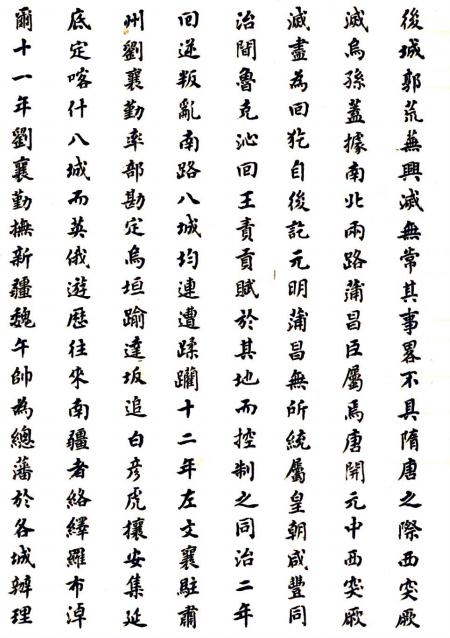 後城郭荒蕪興滅無常其事畧不具隋唐之際西突厥
滅烏孫蓋據南北兩路蒲昌臣屬焉唐開元中西突厥
滅盡為回犵自後訖元明蒲昌無所統屬皇朝咸豐同
治間魯克沁回王責貢賦於其地而控制之同治二年
回逆叛亂南路八城均連遭蹂躪十二年左文襄駐肅
州劉襄勤率部勘定烏垣踰達坂追白彥虎攘安集延
底定喀什八城而英俄遊歷往來南疆者絡繹羅布淖
爾十一年劉襄勤撫新疆魏午帥為總藩於各城辦理